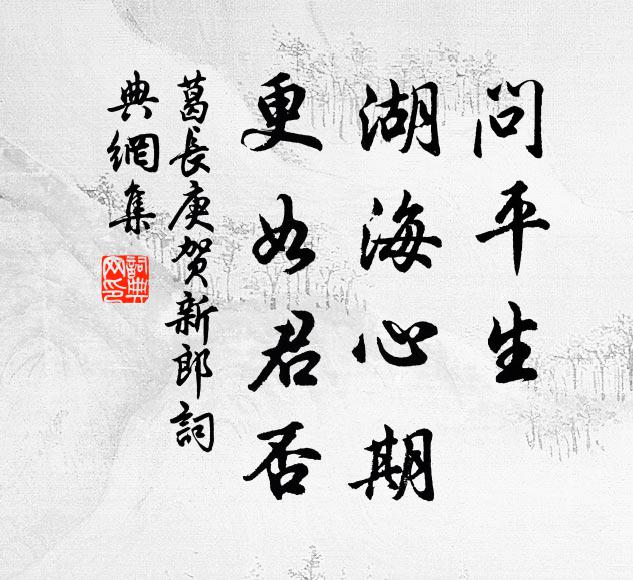 问平生
湖海心期
更如君否
葛長庚賀新郎詞
典網集
詞典网印